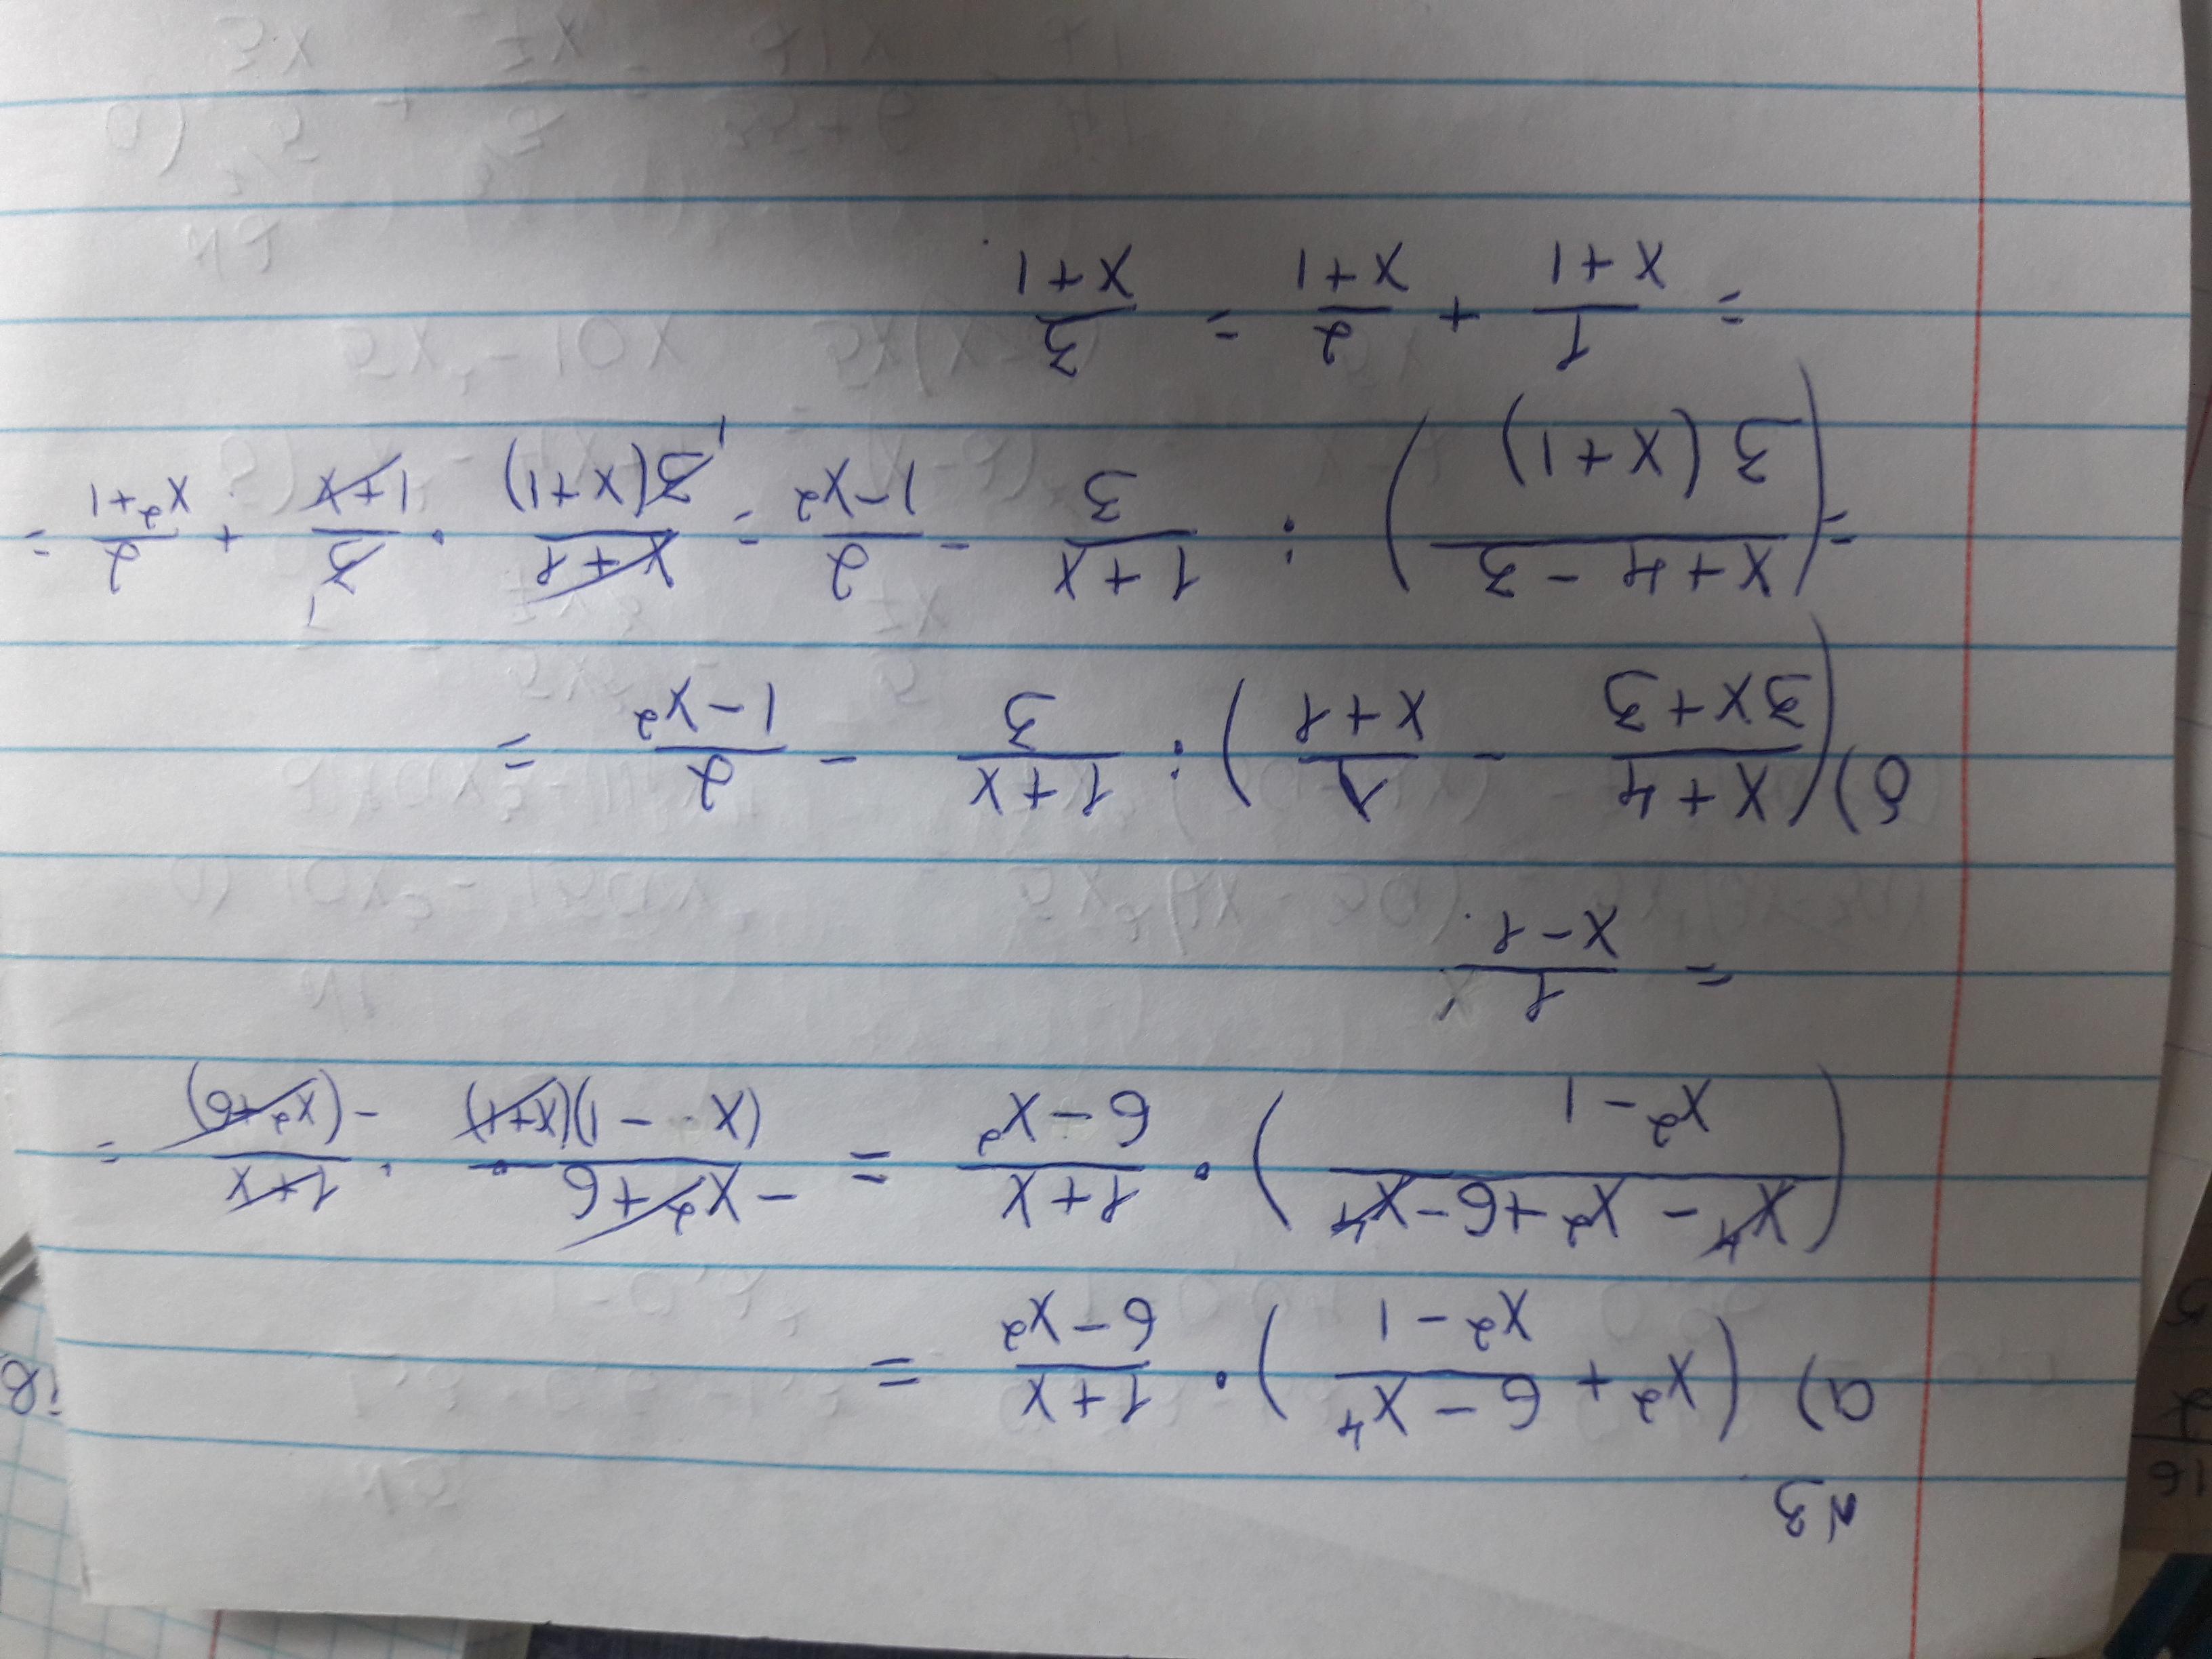 N3
а) (x² + (6 - x⁴)/(x² - 1)) · (1+x)/(6 - x²) =
((x⁴ - x² + 6 - x⁴)/(x² - 1)) · (1+x)/(6 - x²) = (-x²+6)/((x - 1)(x+1)) · (1+x)/(-(x²+6)) =
= 1/(x - 1).
б) ((x+4)/(3x+3) - 1/(x+1)) : (1+x)/3 - 2/(1-x²) =
= ((x+4-3)/(3(x+1))) : (1+x)/3 - 2/(1-x²) = (x+1)/(3(x+1)) · 3/(1+x) + 2/(x²+1) =
= 1/(x+1) + 2/(x+1) = 3/(x+1).